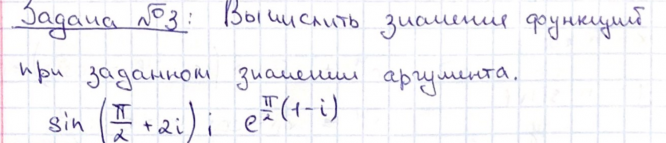 Задача №3: Вычислить значения функций
при заданном значении аргумента.
sin (π/2 + 2i) ; e^{π/2 (1-i)}